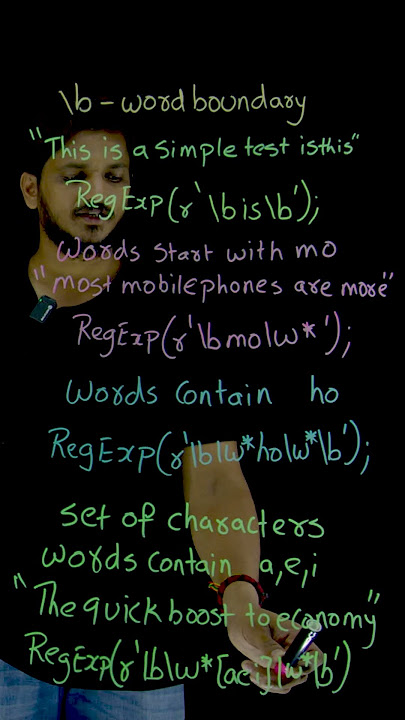 \b - word boundary
"This is a simple test isthis"
RegExp(r'\bis\b');
Words start with mo
"most mobilephones are more"
RegExp(r'\bmo\w*');
Words Contain ho
RegExp(r'\b\w*ho\w*\b');
set of characters
words contain a,e,i
"The quick boost to economy"
RegExp(r'\b\w*[aei]\w*\b')